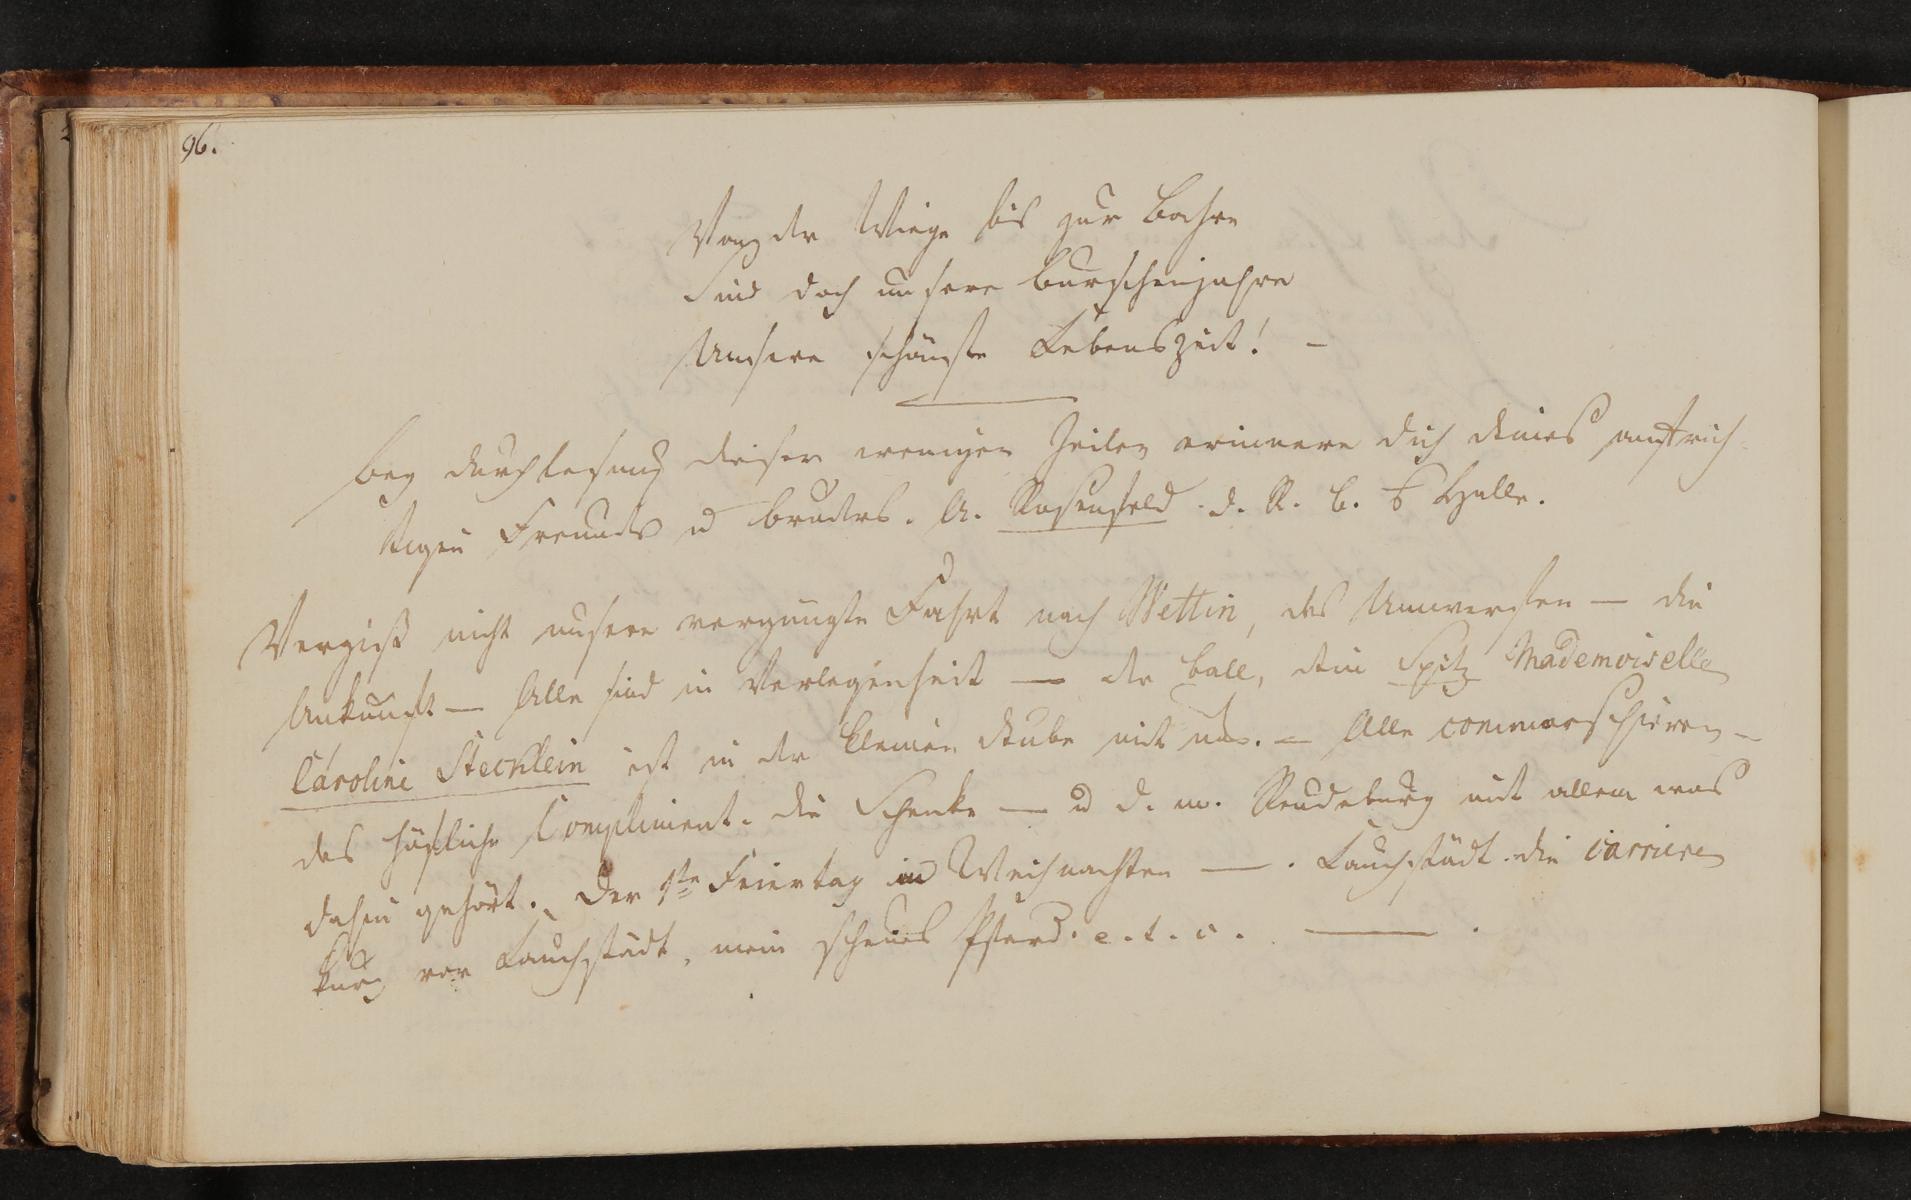 96.
Von der Wiege bis zur Bahre
Sind doch unsere Burschenjahre
Unsere schönste Lebenszeit! –
Bey Durchlesung dieser wenigen Zeilen erinnere dich deines aufrich-
tigen Freundes u Bruders. A. Rosenfeld. d. R. B. z Halle.
Vergiß nicht unsere vergnügte Fahrt nach Wettin, das Umwerfen — die
Ankunft — Alle sind in Verlegenheit — der Ball, dein Spitz Mademoiselle
Caroline Stecklein ist in der kleinen Stube mit uns. – Alle commerschieren –
das häßliche Compliment. die Schenke — u d. m. Neudeburg mit allem was
dahin gehört. Der 1te Feiertag in Weihnachten —. Lauchstädt. die carriere
kurz vor Lauchstädt, mein scheues Pferd. e. t. c. — .